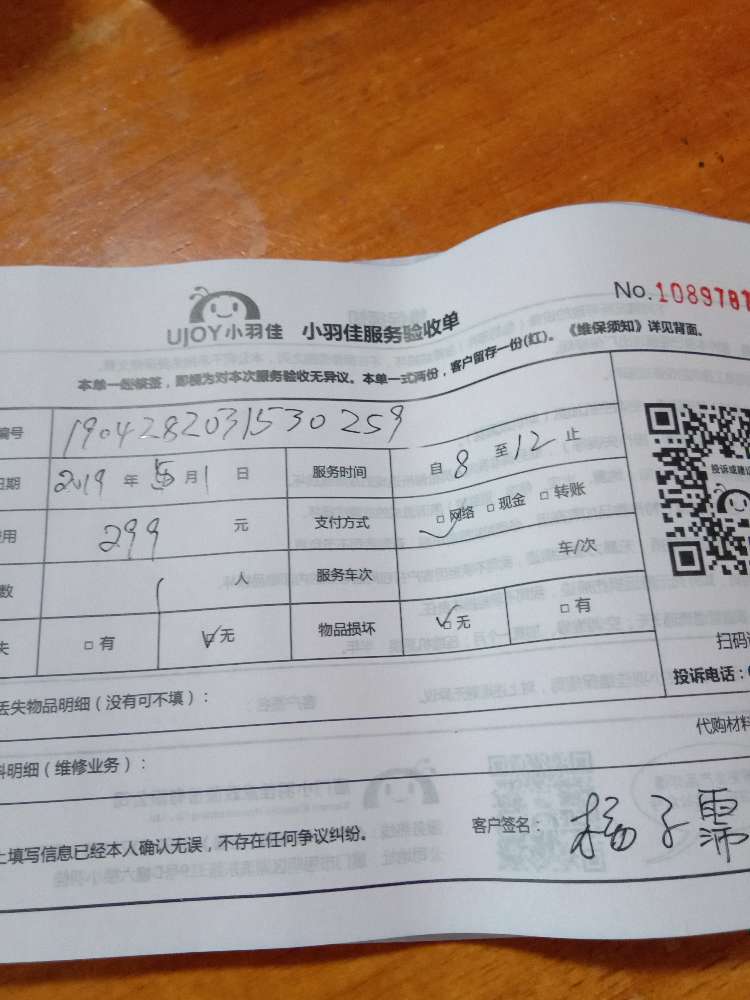 No.1089787
UJOY小羽佳 小羽佳服务验收单
本单一经核签，即视为对本次服务验收无异议。本单一式两份，客户留存一份(红)。《维保须知》详见背面。
编号 1904282031530259
日期 2019 年 5 月 1 日 服务时间 自 8 至 12 止
用 299 元 支付方式 □网络 □现金 □转账
数 1 人 服务车次 车/次
失 □有 □无 物品损坏 □无 □有
投诉或建议
扫码
投诉电话：
丢失物品明细（没有可不填）：
代购材料
料明细（维修业务）：
上填写信息已经本人确认无误，不存在任何争议纠纷。
客户签名： 杨子霈